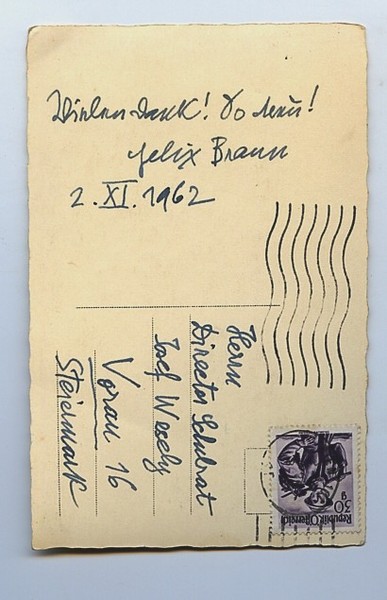 Vielen Dank! So lieb!
Felix Braun
2. XI. 1962
Herrn
Director Schulrat
Josef Wesely
Vorau 16
Steiermark
30 g
Republik Österreich